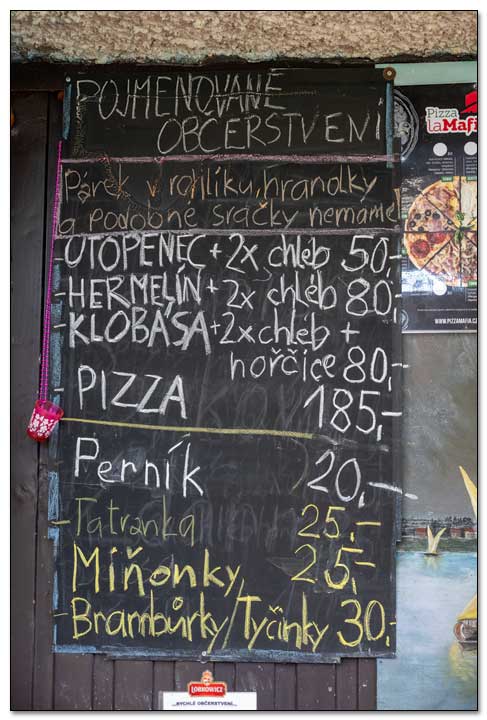 POJMENOVANÉ
OBČERSTVENÍ
Párek v rohlíku, hranolky
a podobné sračky nemáme!
- UTOPENEC + 2x chléb 50,-
- HERMELÍN + 2x chléb 80,-
- KLOBÁSA + 2x chléb +
hořčice 80,-
- PIZZA 185,-
Perník 20,-
- Tatranka 25.-
Miňonky 25,-
- Brambůrky/Tyčinky 30,-
Pizza
laMafia
WWW.PIZZAMAFIA.CZ
LOBKOWICZ
...RYCHLÉ OBČERSTVENÍ...